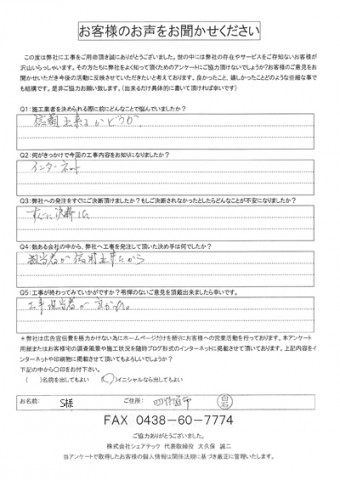 お客様のお声をお聞かせください
この度は弊社に工事をご用命頂き誠にありがとうございました。世の中には弊社の存在やサービスをご存知ないお客様が
沢山いらっしゃいます。その方たちに弊社をよく知って頂くためのアンケートにご協力頂けないでしょうか?お客様のご意見をお
聞かせいただき今後の活動に反映させていただきたいと考えております。良かったこと、嬉しかったことどのような些細な事で
も結構です。是非ご協力お願い致します。(出来るだけ具体的に書いて頂ければ幸いです)
Q1:施工業者を決められる際に前にどんなことで悩んでいましたか?
信頼出来るかどうか
Q2:何がきっかけで今回の工事内容をお知りになりましたか?
インターネット
Q3:弊社への発注をすぐにご決断頂けましたか?もしご決断されなかったとしたらどんなことが不安になりましたか?
すぐに決断した
Q4:数ある会社の中から、弊社へ工事を発注して頂いた決め手は何でしたか?
担当者が信頼出来たから
Q5:工事が終わってみていかがですか?弗保のないご意見を頂戴出来ましたら幸いです。
工事担当者が
*弊社では広告宣伝費を極力かけない為にホームページだけを頼りにお客様への営業活動を行っております。本アンケート
用紙またはお客様宅の調査風景や施工状況を随時ブログ形式のインターネットに掲載させて頂いております。上記内容をイ
ンターネットや印刷物に掲載させて頂いてもよろしいでしょうか?
下記の中から〇印をお付下さい。
( )名前を出してもよい (〇)イニシャルなら出してもよい
お名前: S様 ご住所: 四街道市
FAX 0438-60-7774
ご協力ありがとうございました。
株式会社シェアテック 代表取締役 大久保 誠二
当アンケートで取得したお客様の個人情報は関係法規に基づき厳正に管理いたします。